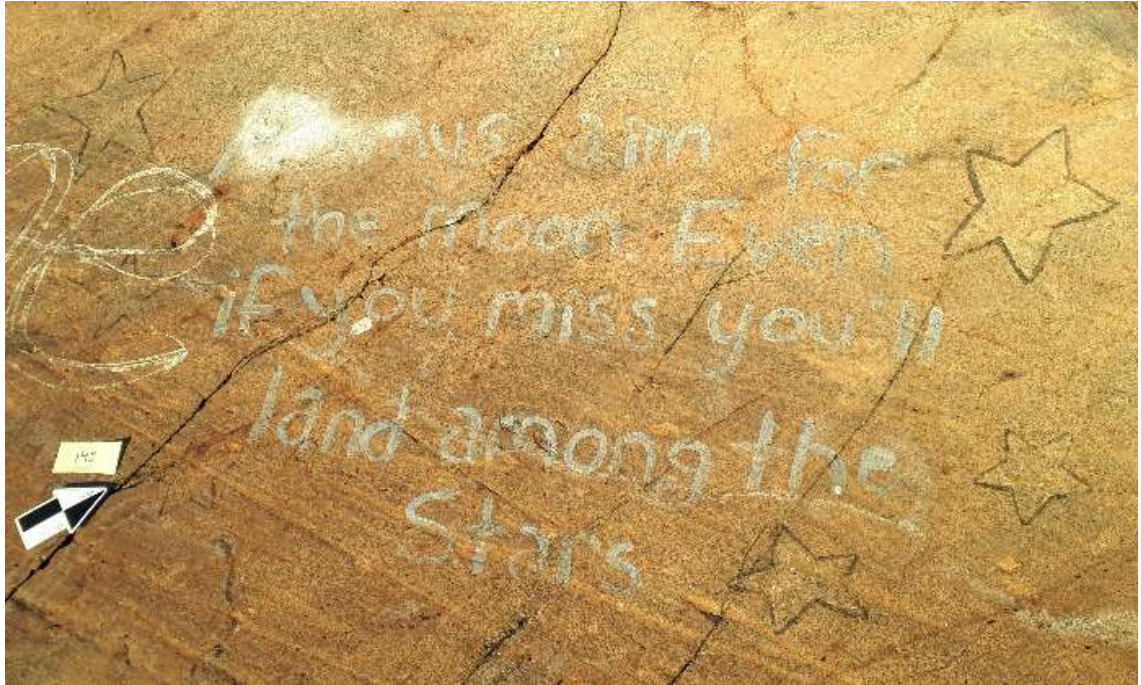 aim for
the moon. Even
if you miss you'll
land among the
Stars